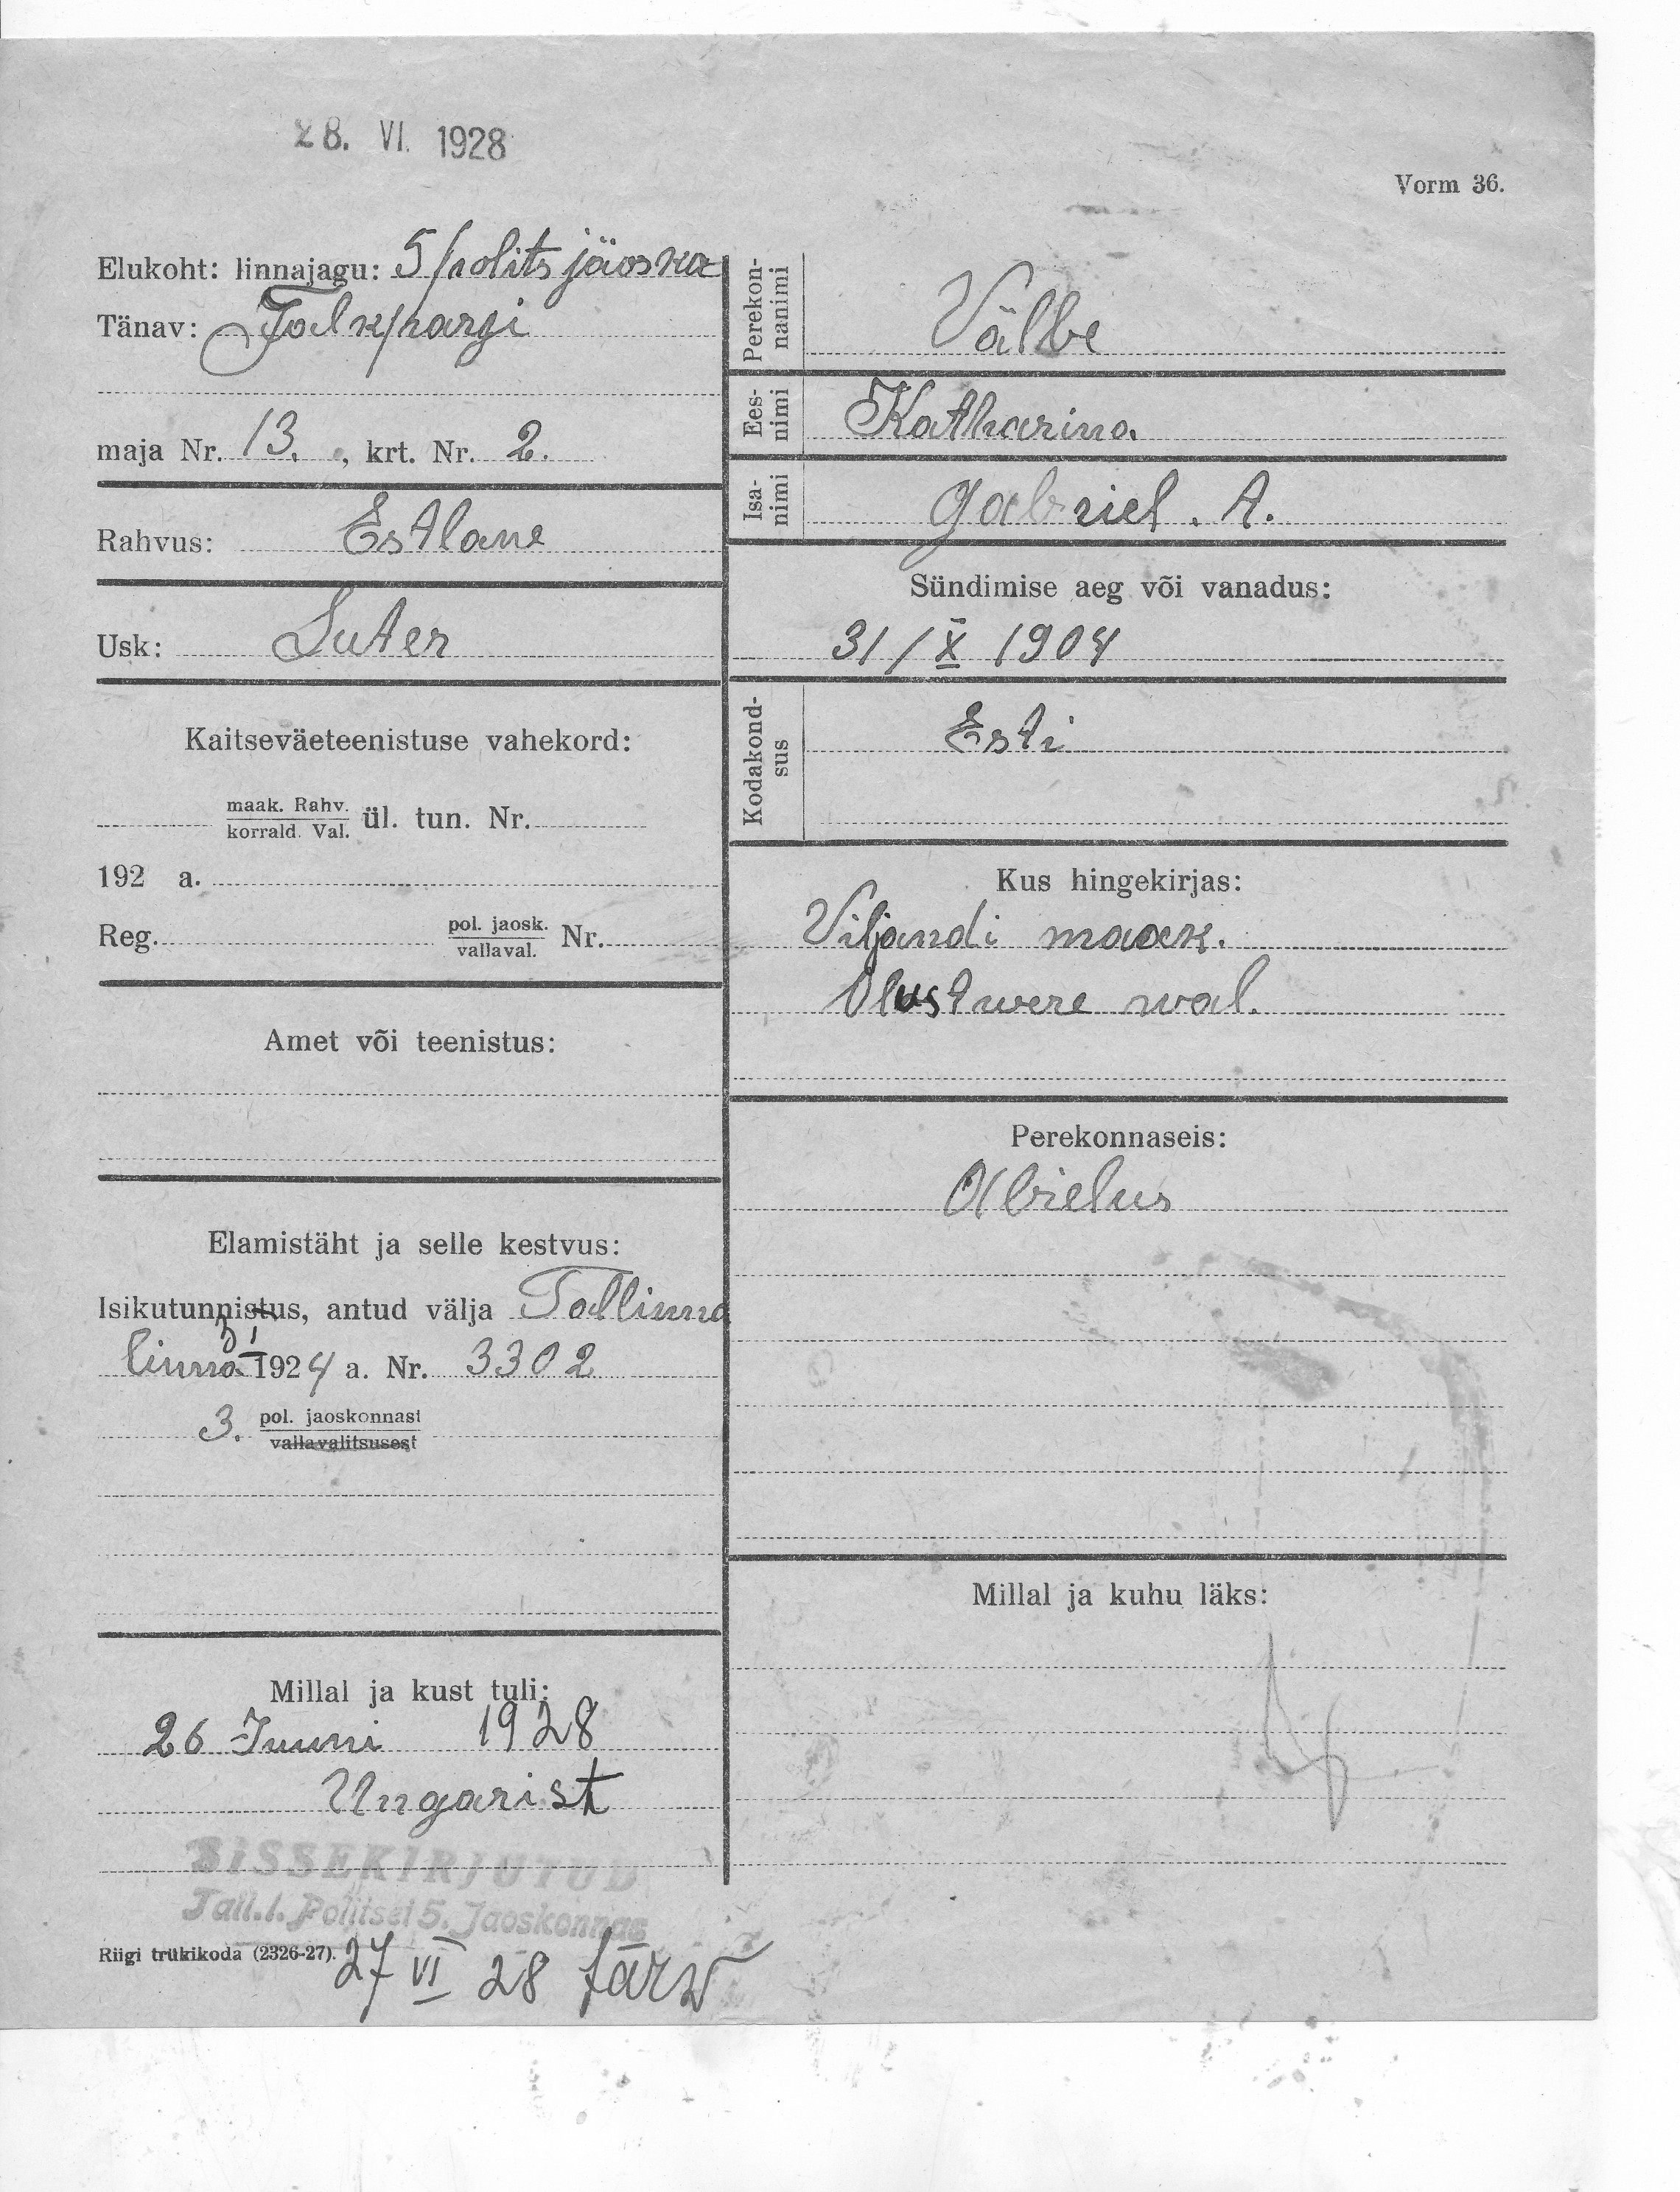 28. VI. 1928
Vorm 36.
Elukoht: linnajagu: 5 polits jäoska
Tänav: Falkpargi
maja Nr. 13. , krt. Nr. 2.
Rahvus: Estlane
Usk: Luter
Kaitseväeteenistuse vahekord:
maak. Rahv.
korrald. Val. ül. tun. Nr.
192 a.
Reg. pol. jaosk.
vallaval. Nr.
Amet või teenistus:
Elamistäht ja selle kestvus:
Isikutunnistus, antud välja Tallinna
linna 1924 a. Nr. 3302
3. pol. jaoskonnast
vallavalitsusest
Millal ja kust tuli:
26 Juuni 1928
Ungarist
SISSEKIRJUTUD
Tall. l. Politsei 5. Jaoskonnas
Riigi trükikoda (2326-27).
27 VI 28 Järw
Perekon-
nanimi
Välbe
Ees-
nimi
Katharina
Isa-
nimi
Gabriel. A.
Sündimise aeg või vanadus:
31/X 1904
Kodakond-
sus
Esti
Kus hingekirjas:
Viljandi maak.
Olustwere wal.
Perekonnaseis:
Abielus
Millal ja kuhu läks: